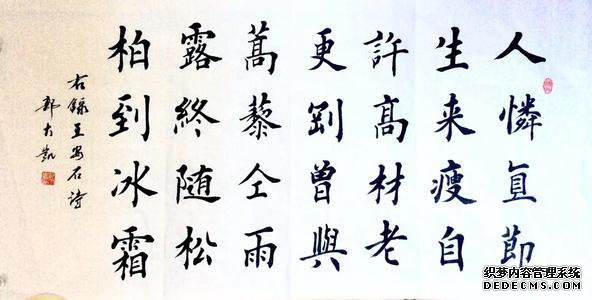 人憐直節
生来瘦自
許高材老
更剛曾與
蒿藜仝雨
露終随松
柏到冰霜
右錄王安石詩
郭大凯
织梦内容管理系统
DEDECMS.COM